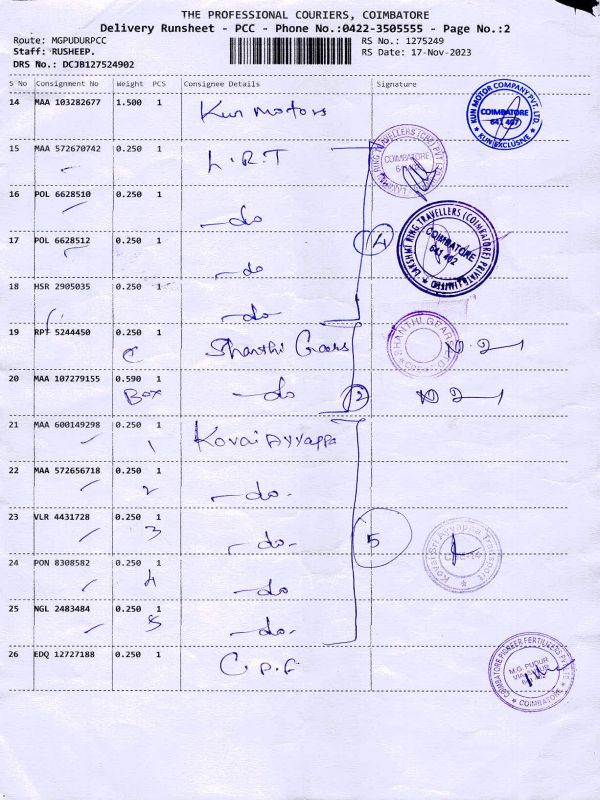 THE PROFESSIONAL COURIERS, COIMBATORE
Delivery Runsheet - PCC - Phone No.:0422-3505555 - Page No.:2
Route: MGPUDURPCC RS No.: 1275249
Staff: RUSHEEP. RS Date: 17-Nov-2023
DRS No.: DCJB127524902
S No Consignment No Weight PCS Consignee Details Signature
14 MAA 103282677 1.500 1 Kun Motors
KUN MOTOR COMPANY PVT. LTD.
COIMBATORE
641 407
KUN EXCLUSIVE
15 MAA 572670742 0.250 1 L.R.T
COIMBATORE
16 POL 6628510 0.250 1 -do
17 POL 6628512 0.250 1 -do
4
LAKSHMI RING TRAVELLERS (COIMBATORE) PRIVATE LIMITED
COIMBATORE
641 402
18 HSR 2905035 0.250 1 -do
19 RPT 5244450 0.250 1 Shanthi Gears
C
SHANTHI GEARS LTD
20 MAA 107279155 0.590 1 -do
Box
2
21 MAA 600149298 0.250 1 Kovai Ayyappa
1
22 MAA 572656718 0.250 1 -do-
2
23 VLR 4431728 0.250 1 -do-
3
5
Kovai Sri Ayyappa Transport
24 PON 8308582 0.250 1 -do-
4
25 NGL 2483484 0.250 1 -do-
5
26 EDQ 12727188 0.250 1 C.P.F
COIMBATORE PIONEER FERTILIZERS PVT LTD
M.G. PUDUR
COIMBATORE